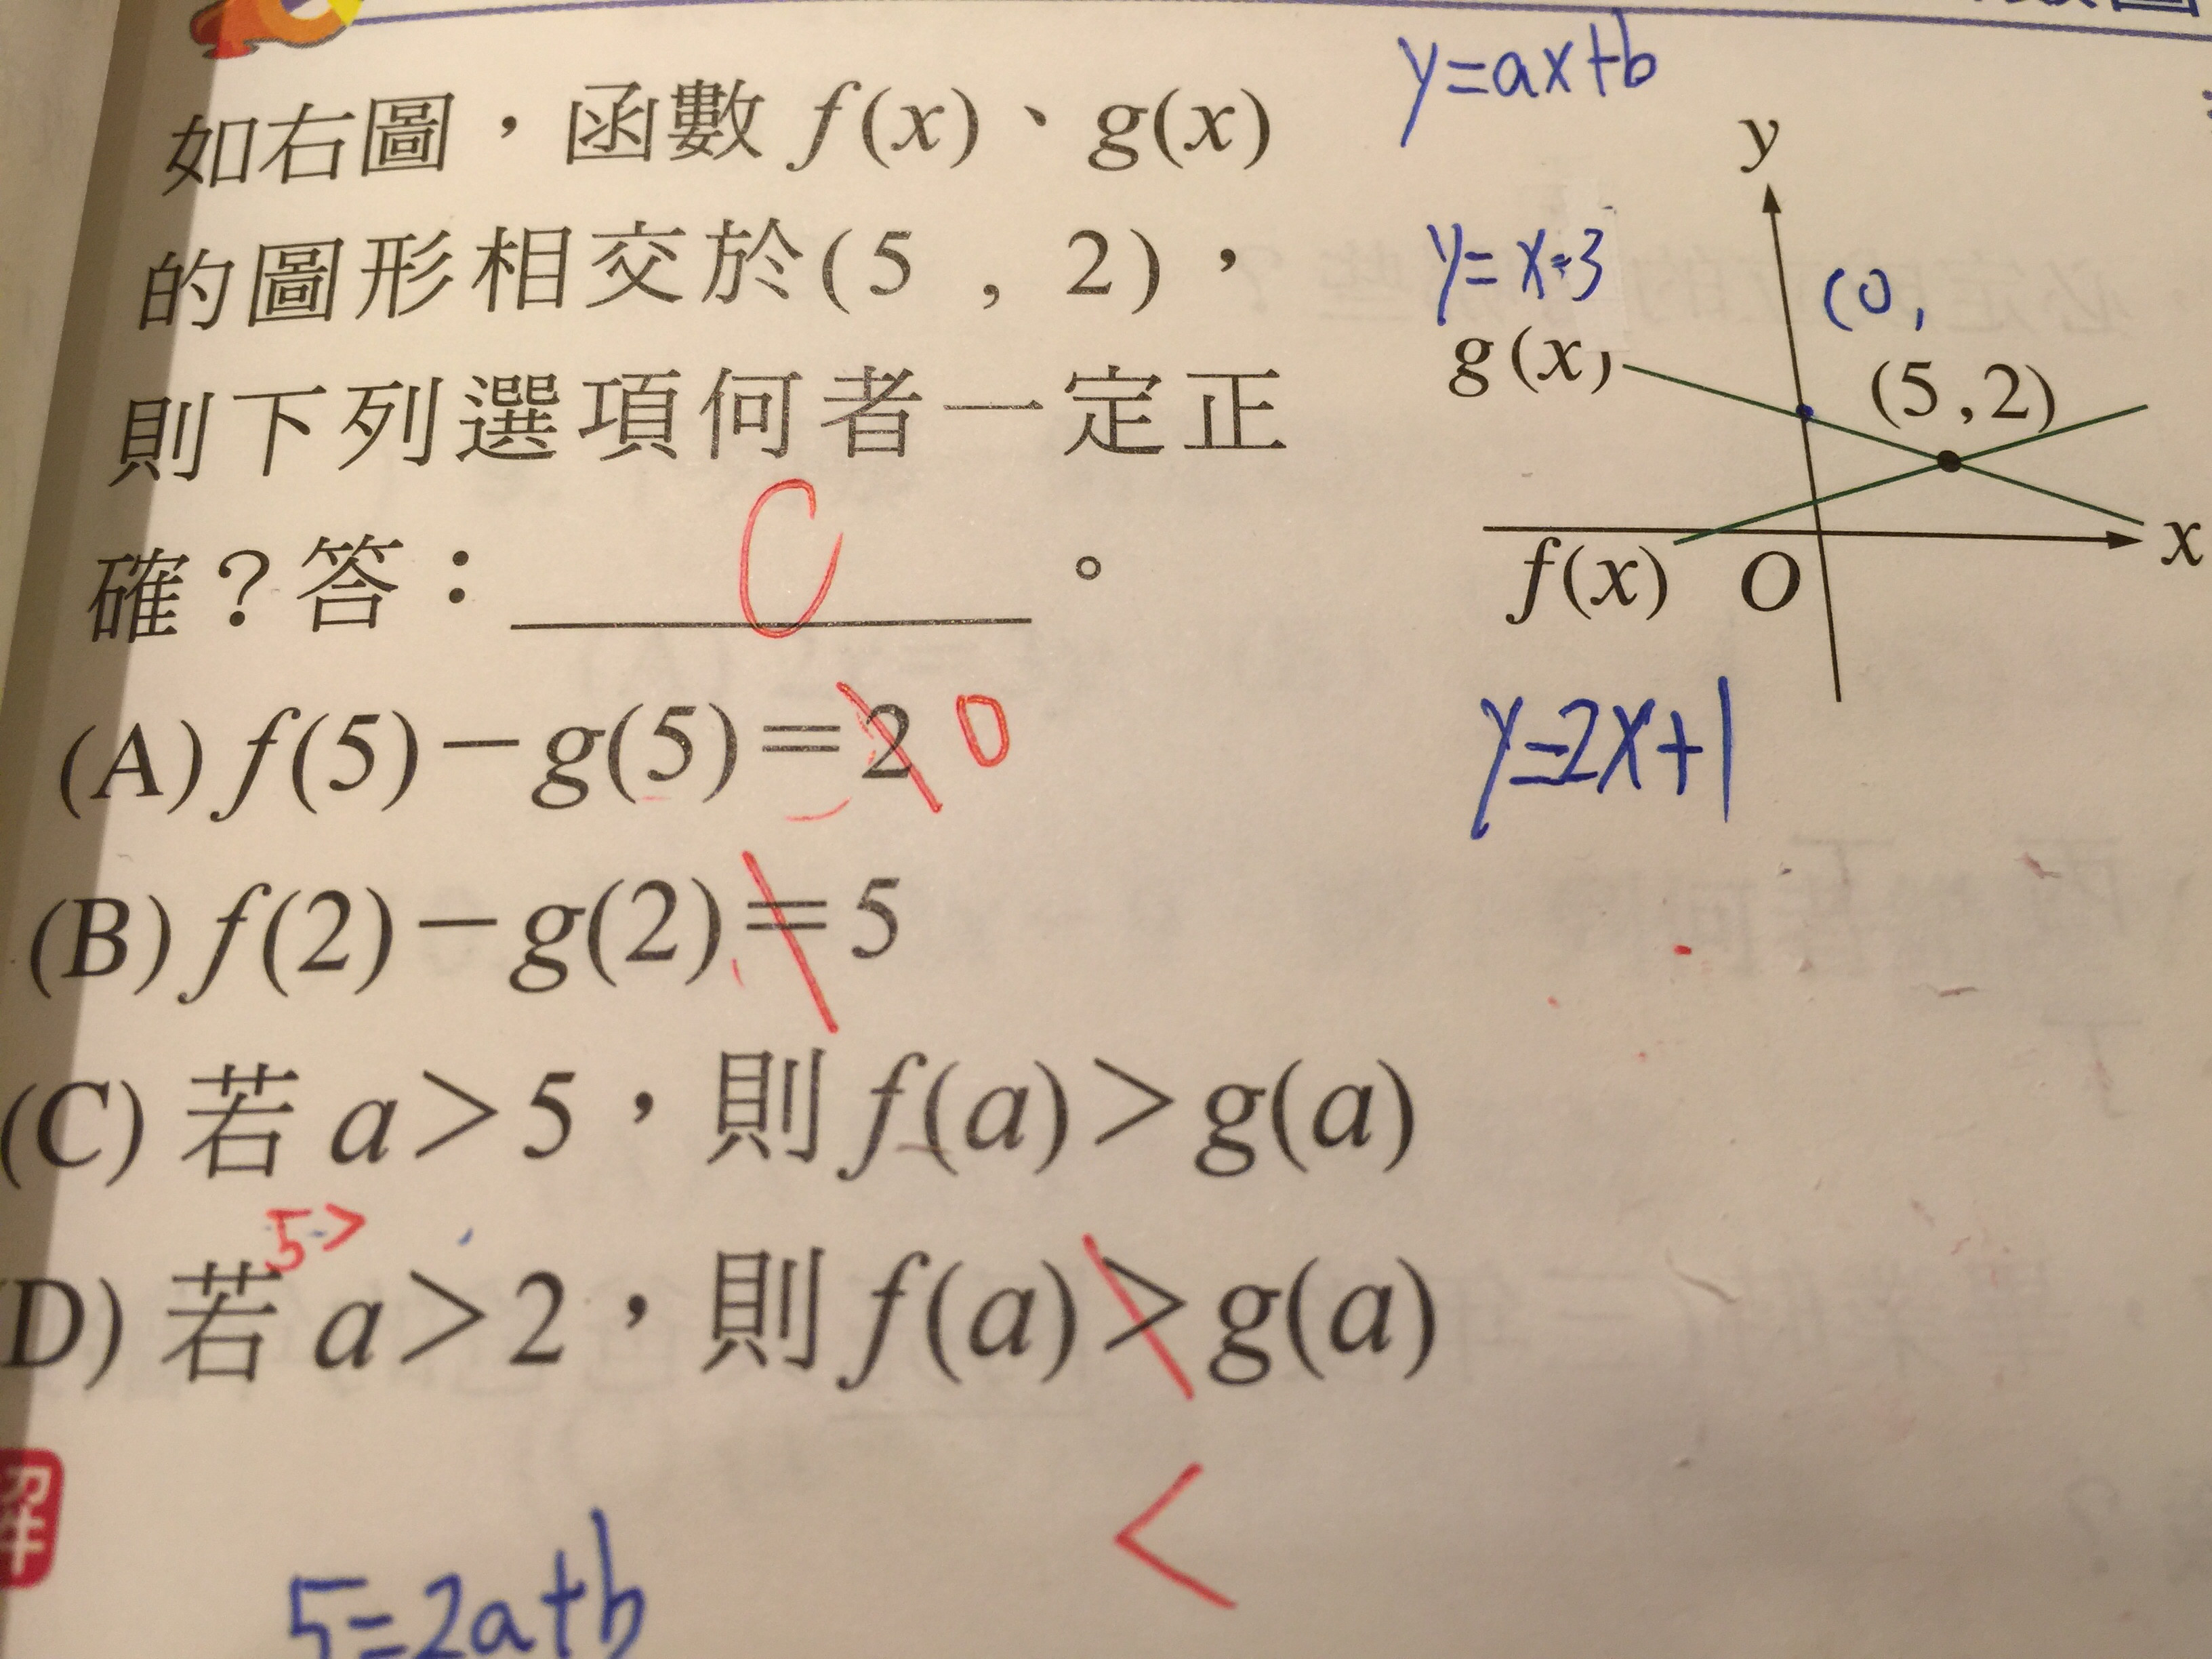 如右圖，函數 f(x)、g(x)
的圖形相交於(5 , 2)，
則下列選項何者一定正
確？答：C。
(A) f(5)－g(5)＝2 0
(B) f(2)－g(2)＝5
(C) 若 a＞5，則 f(a)＞g(a)
5>
(D) 若 a＞2，則 f(a)＞g(a)
<
解
5=2a+b
y=ax+b
y
y=x-3
(0,
g(x)
(5,2)
x
f(x)
O
y=2x+1